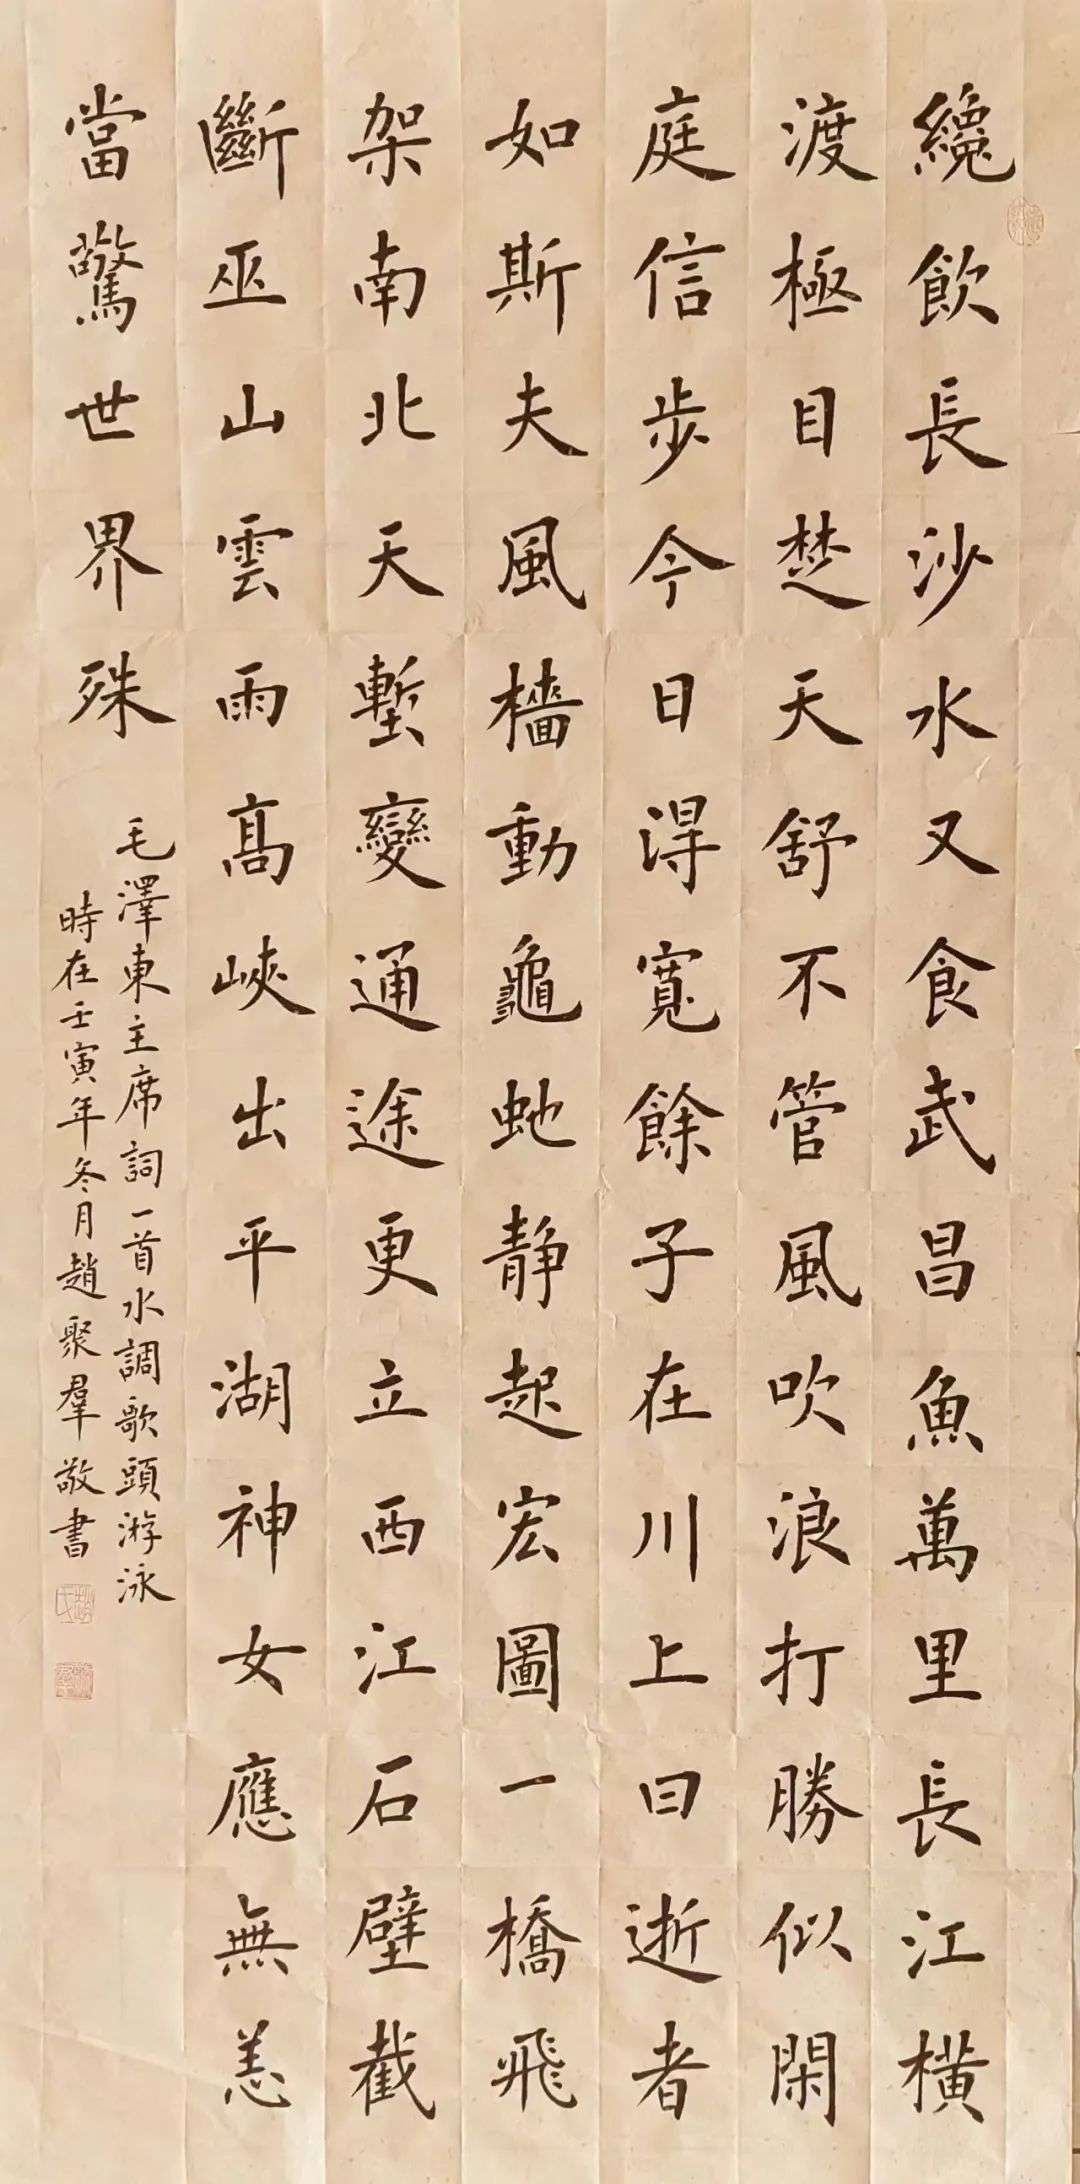 纔飲長沙水又食武昌魚萬里長江橫
渡極目楚天舒不管風吹浪打勝似閑
庭信步今日淂寬餘子在川上曰逝者
如斯夫風檣動龜虵静起宏圖一橋飛
架南北天塹變通途更立西江石壁截
斷巫山雲雨高峽出平湖神女應無恙
當驚世界殊
毛澤東主席詞一首水調歌頭游泳
時在壬寅年冬月趙聚羣敬書